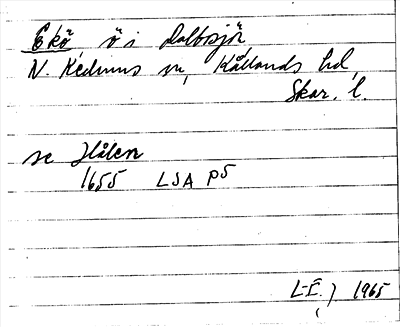 Ekö, ö i Dalbosjön,
N. Kedums sn, Kållands hd,
Skar. l.
se Hålen
1655 LSA P5
L-E. ) 1965